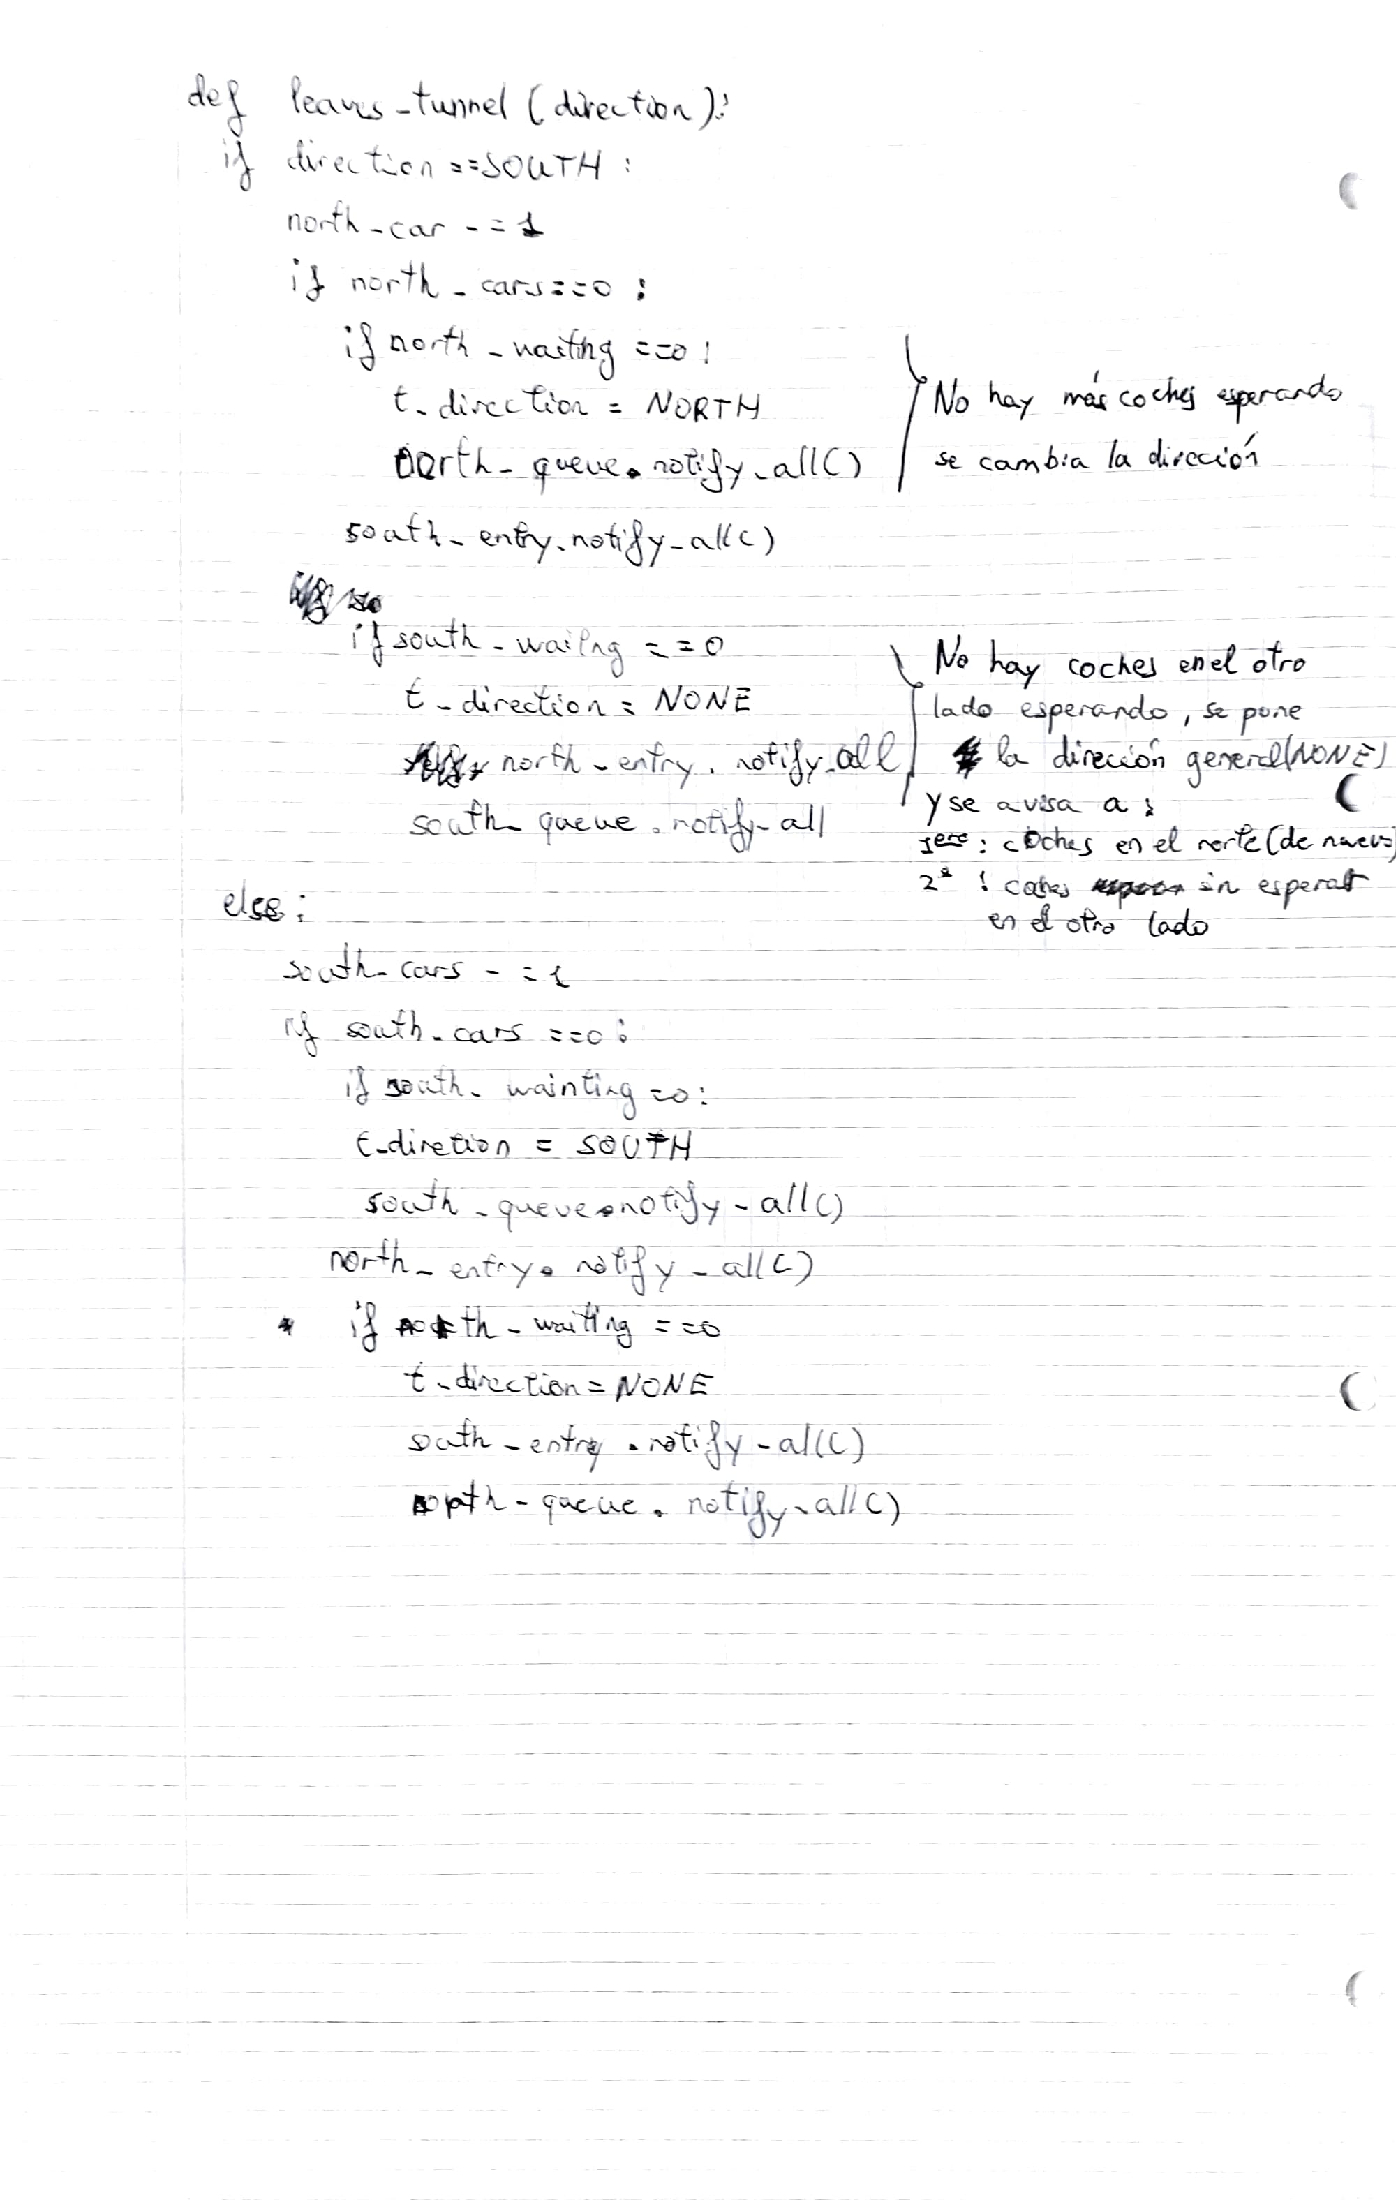 def leaves_tunnel (direction):
if direction ==SOUTH :
north_car -= 1
if north_cars==0 :
if north_waiting ==0 :
t_direction = NORTH
north_queue.notify_all()
No hay más coches esperando
se cambia la dirección
south_entry.notify_all()
if south_waiing ==0
t_direction = NONE
north_entry.notify_all
south_queue.notify_all
No hay coches en el otro
lado esperando, se pone
la direción general (NONE)
y se avisa a :
1ero : coches en el norte (de nuevo)
2º : coches sin esperar
en el otro lado
else :
south_cars -=1
if south_cars ==0 :
if south_wainting =0 :
t_diretion = SOUTH
south_queue.notify_all()
north_entry.notify_all()
* if north_waiting ==0
t_direction = NONE
south_entry.notify_all()
north_queue.notify_all()